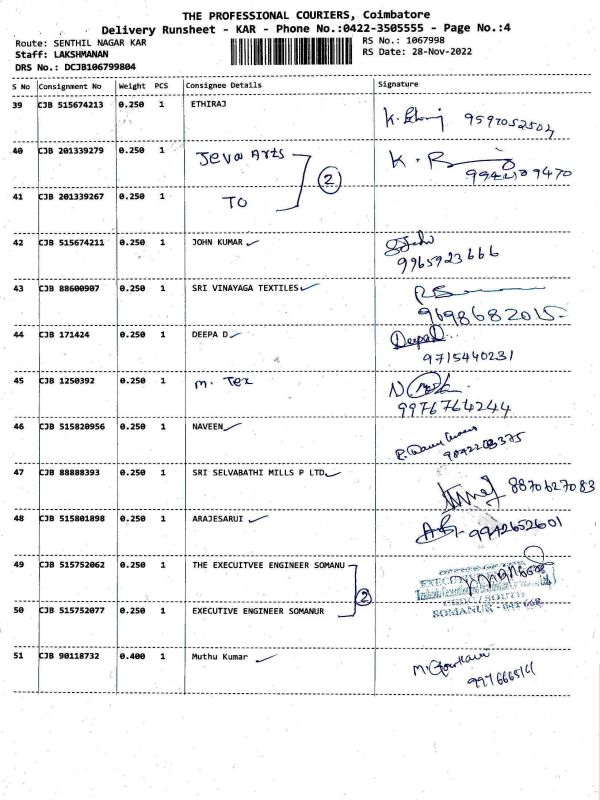 THE PROFESSIONAL COURIERS, Coimbatore
Delivery Runsheet - KAR - Phone No.:0422-3505555 - Page No.:4
Route: SENTHIL NAGAR KAR
RS No.: 1067998
Staff: LAKSHMANAN
RS Date: 28-Nov-2022
DRS No.: DCJB106799804
S No Consignment No Weight PCS Consignee Details Signature
39 CJB 515674213 0.250 1 ETHIRAJ
40 CJB 201339279 0.250 1 Jeva Arts K. R
2
41 CJB 201339267 0.250 1 TO
42 CJB 515674211 0.250 1 JOHN KUMAR
9965923666
43 CJB 88600907 0.250 1 SRI VINAYAGA TEXTILES
9698682015
44 CJB 171424 0.250 1 DEEPA D Deepa D
9715440231
45 CJB 1250392 0.250 1 M. Tex
9976764244
46 CJB 515820956 0.250 1 NAVEEN
9842203375
47 CJB 88888393 0.250 1 SRI SELVABATHI MILLS P LTD
8870627083
48 CJB 515801898 0.250 1 ARAJESARUI
9942652601
49 CJB 515752062 0.250 1 THE EXECUITVEE ENGINEER SOMANU
2
50 CJB 515752077 0.250 1 EXECUTIVE ENGINEER SOMANUR
51 CJB 90118732 0.400 1 Muthu Kumar